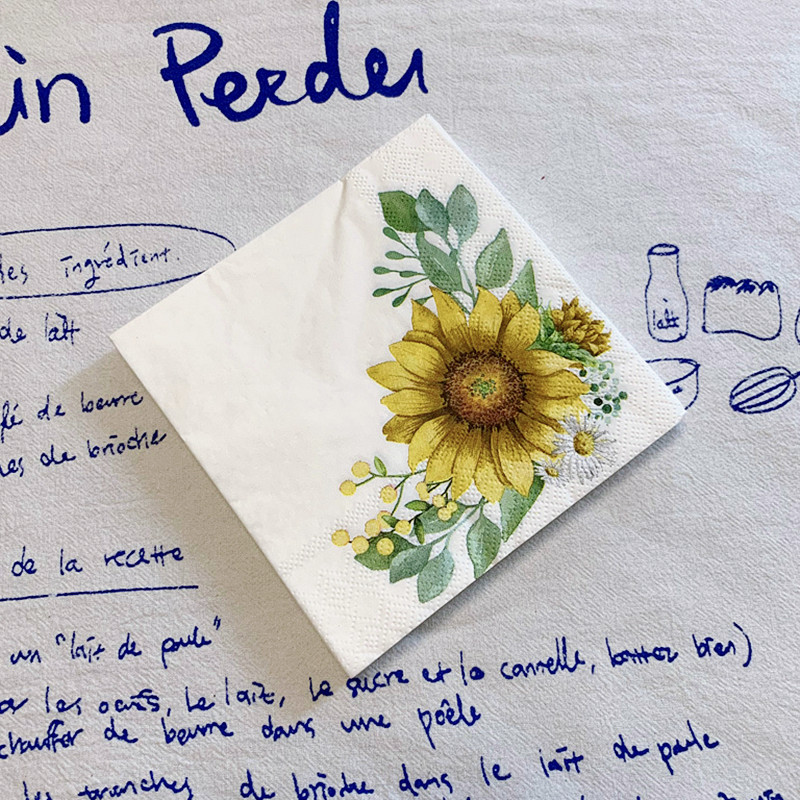 in Perdu
les ingrédient.
de lait
lait
fé de beurre
es de brioche
de la recette
un "lait de poule"
er les oeufs, le lait, le sucre et la cannelle, battez bien)
chauffer de beurre dans une poêle
les tranches de brioche dans le lait de poule